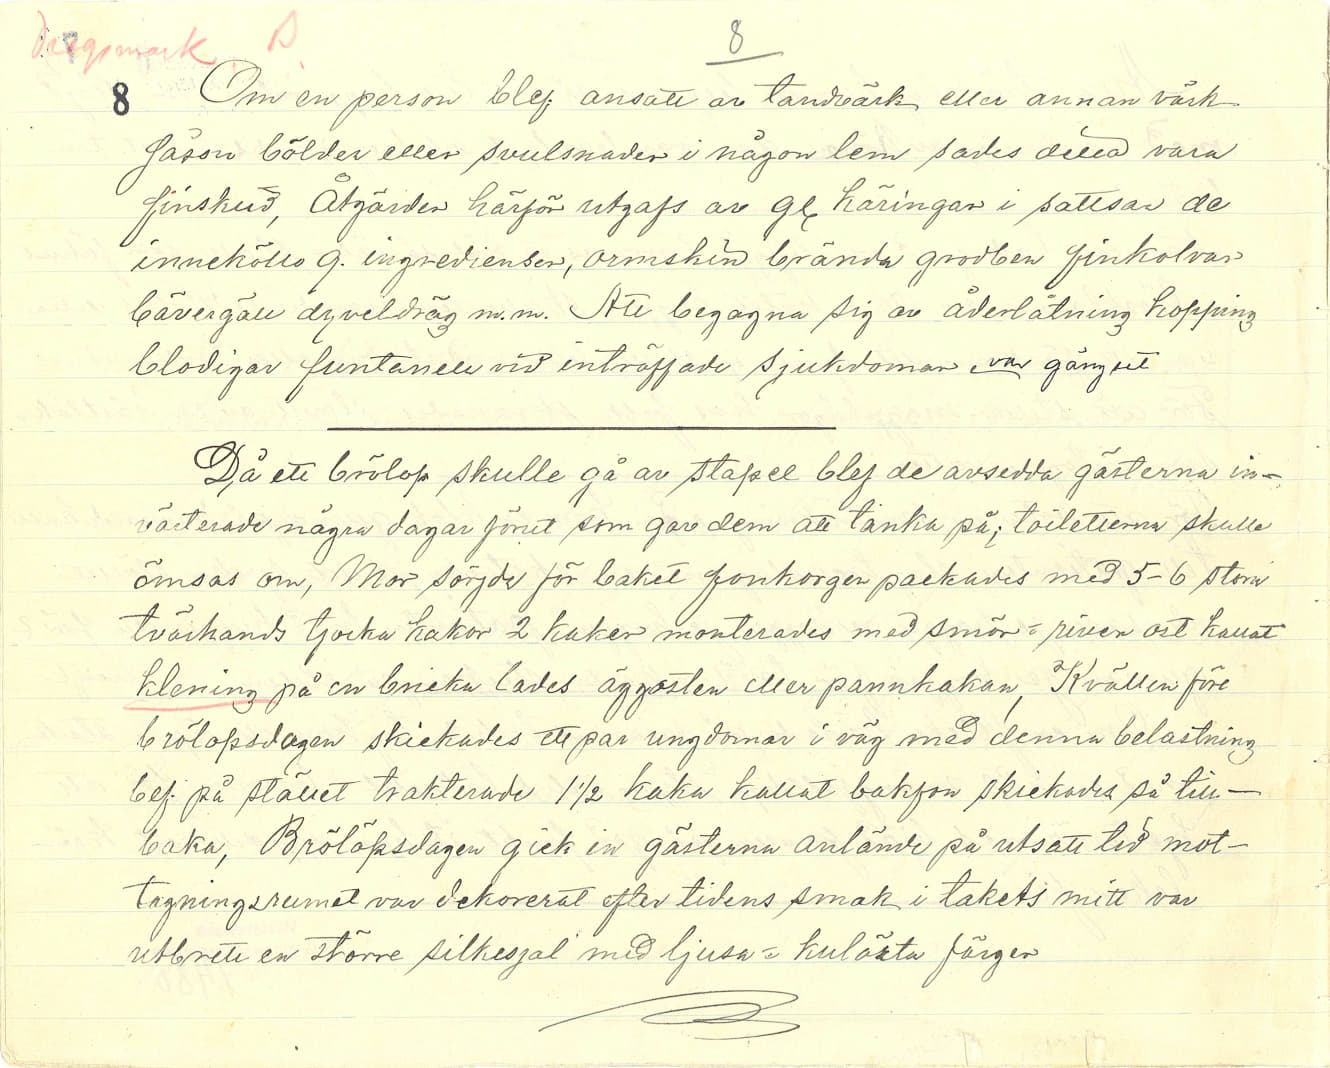 Dragsmark. B.
8
8 Om en person blef ansatt av tandvärk eller annan värk
såson bölder eller svulsnader i någon lem sades detta vara
finskud, Åtgärder härför utgafs av gl. käringar i sattsar de
innehöllo q. ingredienser, ormskin brända grodben finkolvar
bävergäll dyveldräg m.m. Att begagna sig av åderlåtning kopping
blodiglar funtanell vid inträffade sjukdomar var gängset
Då ett brölop skulle gå av stapel blef de avsedda gästerna in-
värterade några dagar förut som gav dem att tänka på; toiletterna skulle
ömsas om, Mor sörjde för baket fonkorgen packades med 5-6 stora
tvärhands tjocka kakor 2 kakor monterades med smör = riven ost kallat
klening på en bricka lades äggosten eller pannkakan, Kvällen före
brölopsdagen skickades ett par ungdomar i väg med denna belastning
blef på stället trakterade 1½ kaka kallat bakfon skickades så till-
baka, Brölöpsdagen gick in gästerna anlände på utsatt tid mot-
tagningsrumet var dekorerat efter tidens smak i takets mitt var
utbrett en större silkesjal med ljusa = kulörta färger